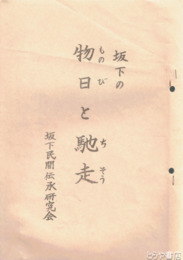 坂下の
物日と馳走
ものび
ちそう
坂下民間伝承研究会